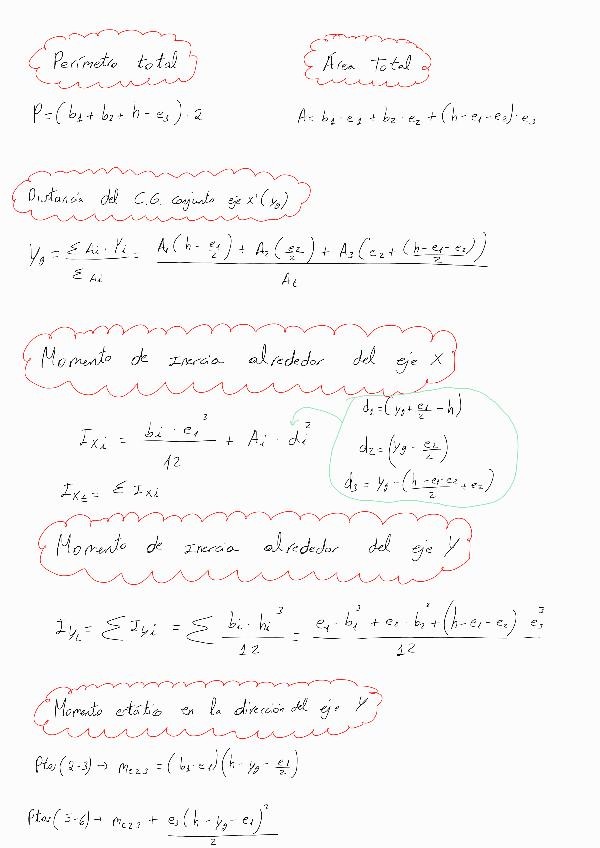 Perímetro total
Área Total
P=(b1+b2+h-e3)·2
A=b1·e1+b2·e2+(h-e1-e2)·e3
Distancia del C.G. conjunto eje x'(yg)
Yg = ΣAi·Yi / ΣAi = (A1(h-e1/2) + A2(e2/2) + A3(e2+((h-e1-e2)/2))) / At
Momento de Inercia alrededor del eje X
d1=(yg+e1/2-h)
Ixi = bi·ei³/12 + Ai·di²
d2=(yg-e2/2)
d3=yg-((h-e1-e2)/2+e2)
Ixt=ΣIxi
Momento de Inercia alrededor del eje Y
Iyt=ΣIyi=Σ bi·hi³/12 = (e1·b1³+e2·b2³+(h-e1-e2)·e3³)/12
Momento estático en la dirección del eje Y
Ptos(2-3)→me23=(b1·e1)(h-yg-e1/2)
→me23+e3(h-yg-e1)²/2